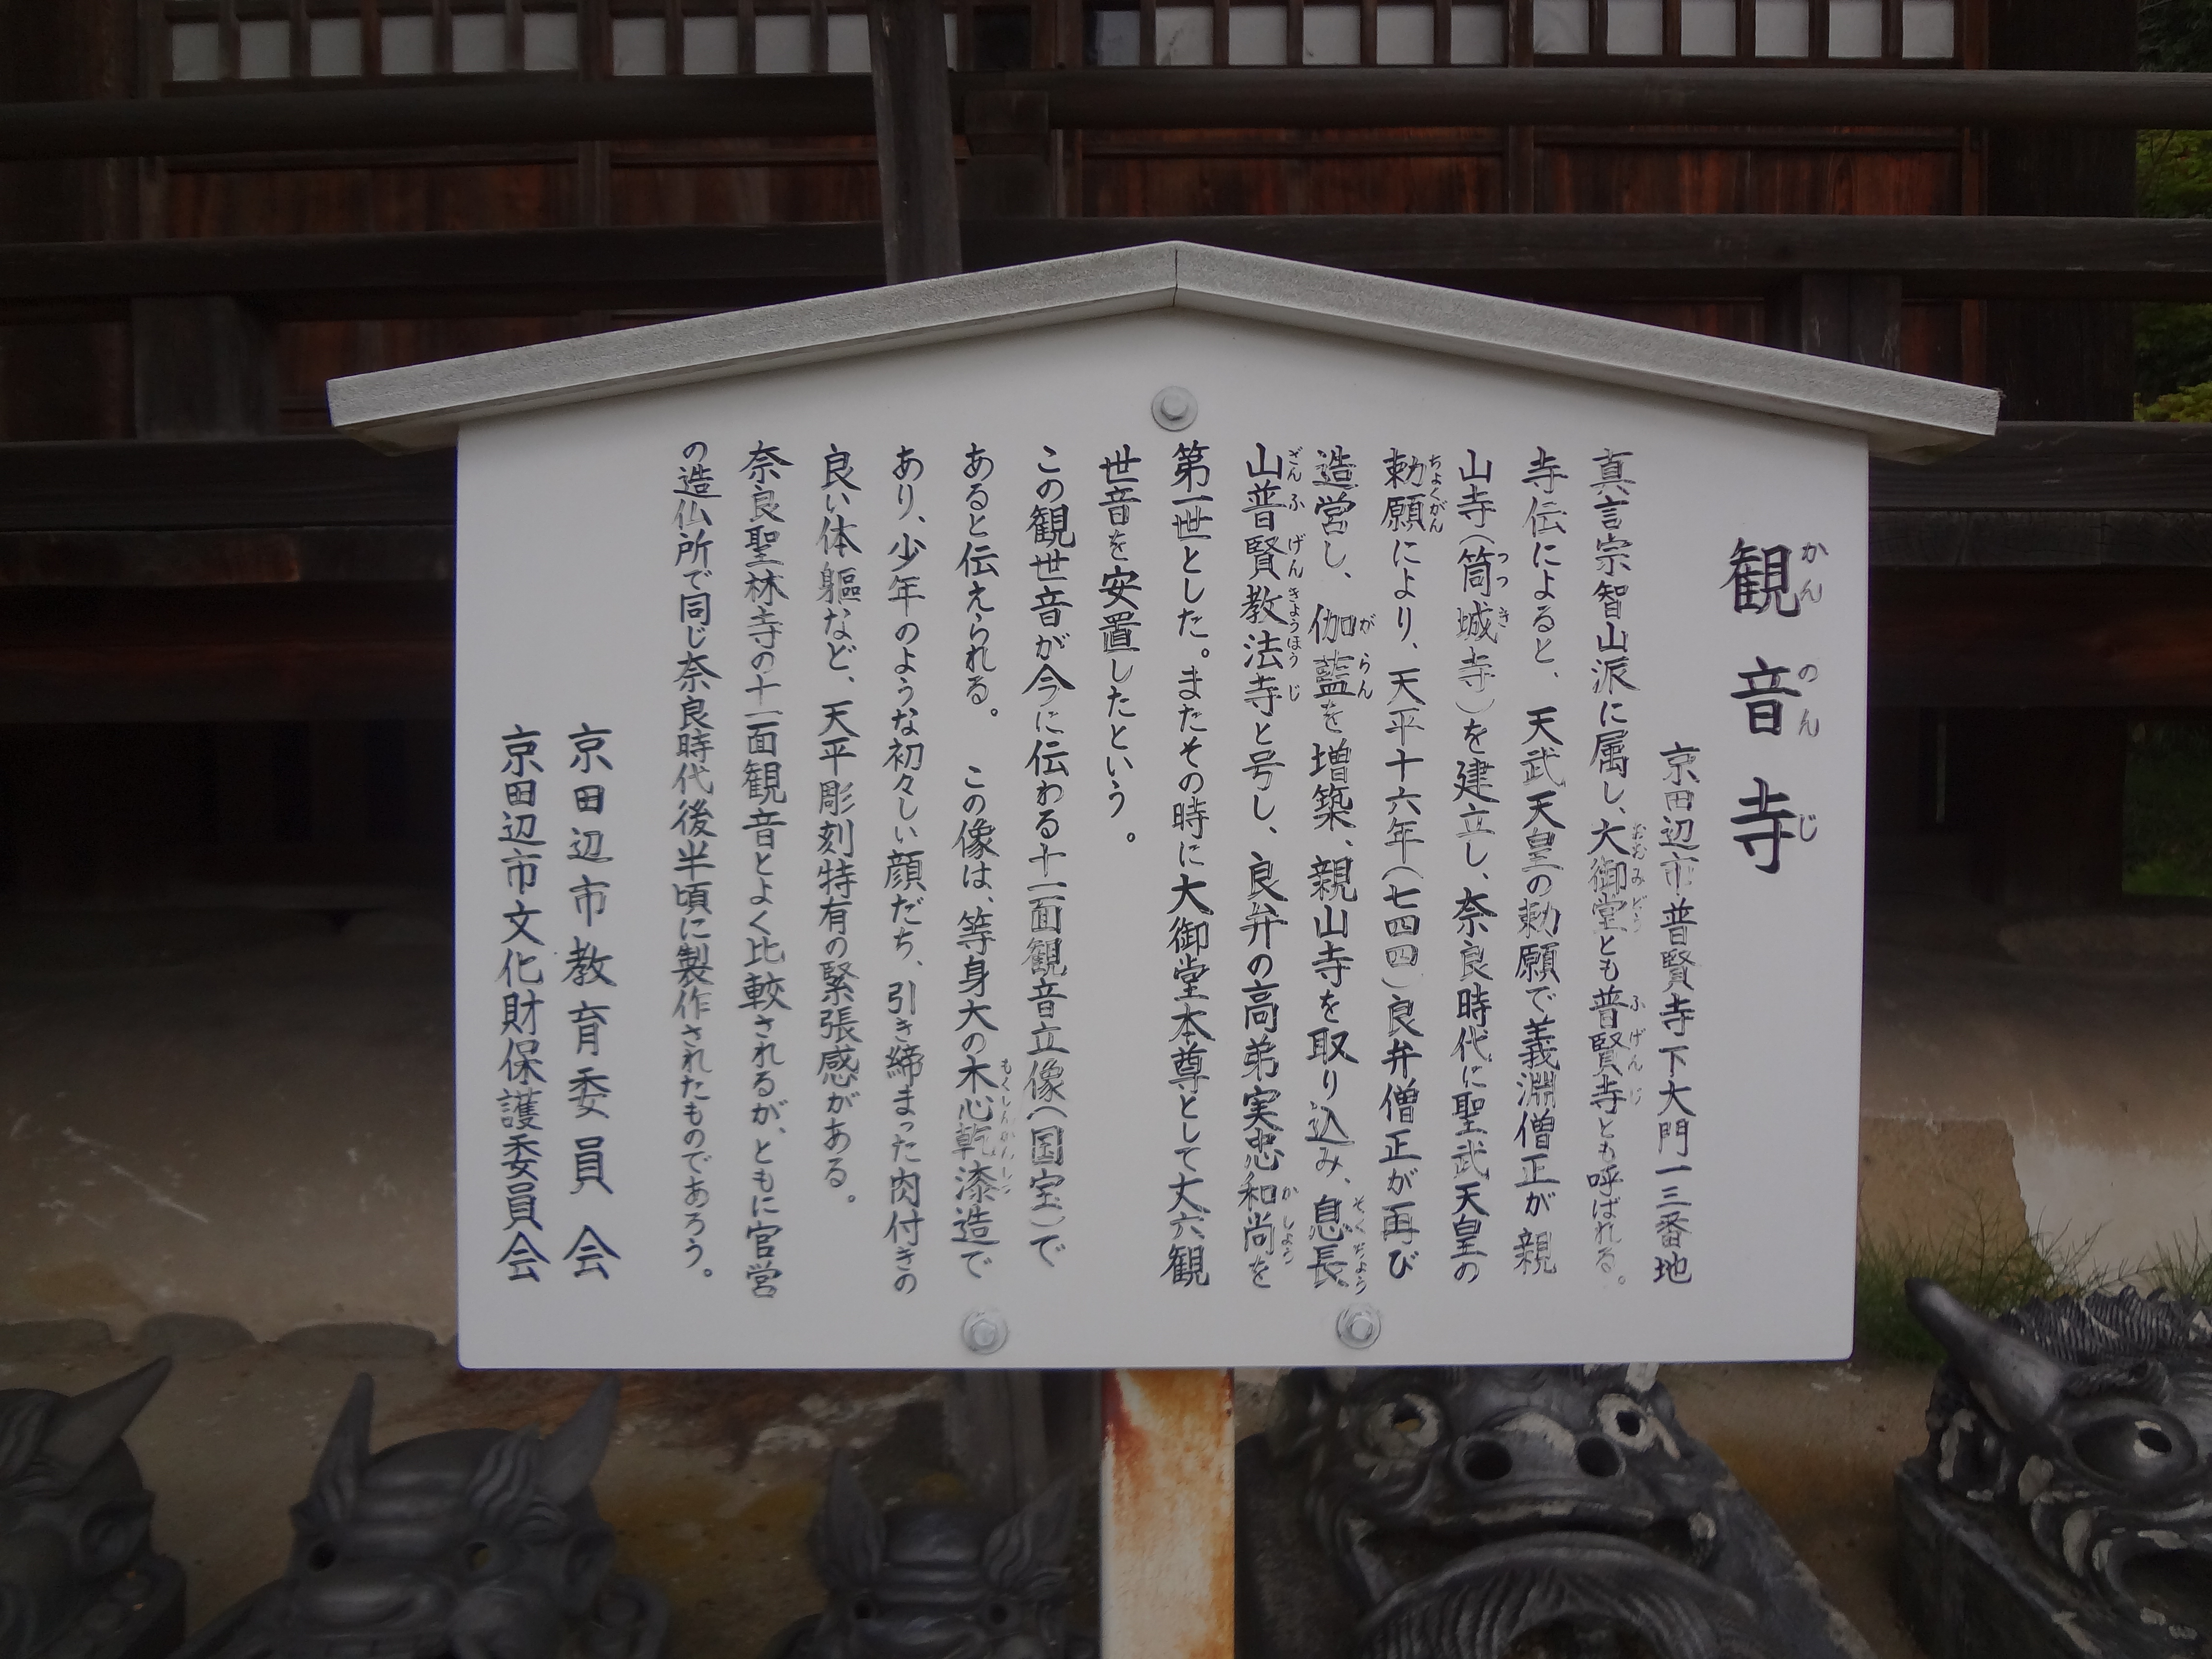 観音寺
京田辺市普賢寺下大門一三番地
真言宗智山派に属し、大御堂とも普賢寺とも呼ばれる。
寺伝によると、天武天皇の勅願で義淵僧正が親
山寺(筒城寺)を建立し、奈良時代に聖武天皇の
勅願により、天平十六年(七四四)良弁僧正が再び
造営し、伽藍を増築、親山寺を取り込み、息長
山普賢教法寺と号し、良弁の高弟実忠和尚を
第一世とした。またその時に大御堂本尊として丈六観
世音を安置したという。
この観世音が今に伝わる十一面観音立像(国宝)で
あると伝えられる。 この像は、等身大の木心乾漆造で
あり、少年のような初々しい顔だち、引き締まった肉付きの
良い体躯など、天平彫刻特有の緊張感がある。
奈良聖林寺の十一面観音とよく比較されるが、ともに官営
の造仏所で同じ奈良時代後半頃に製作されたものであろう。
京田辺市教育委員会
京田辺市文化財保護委員会